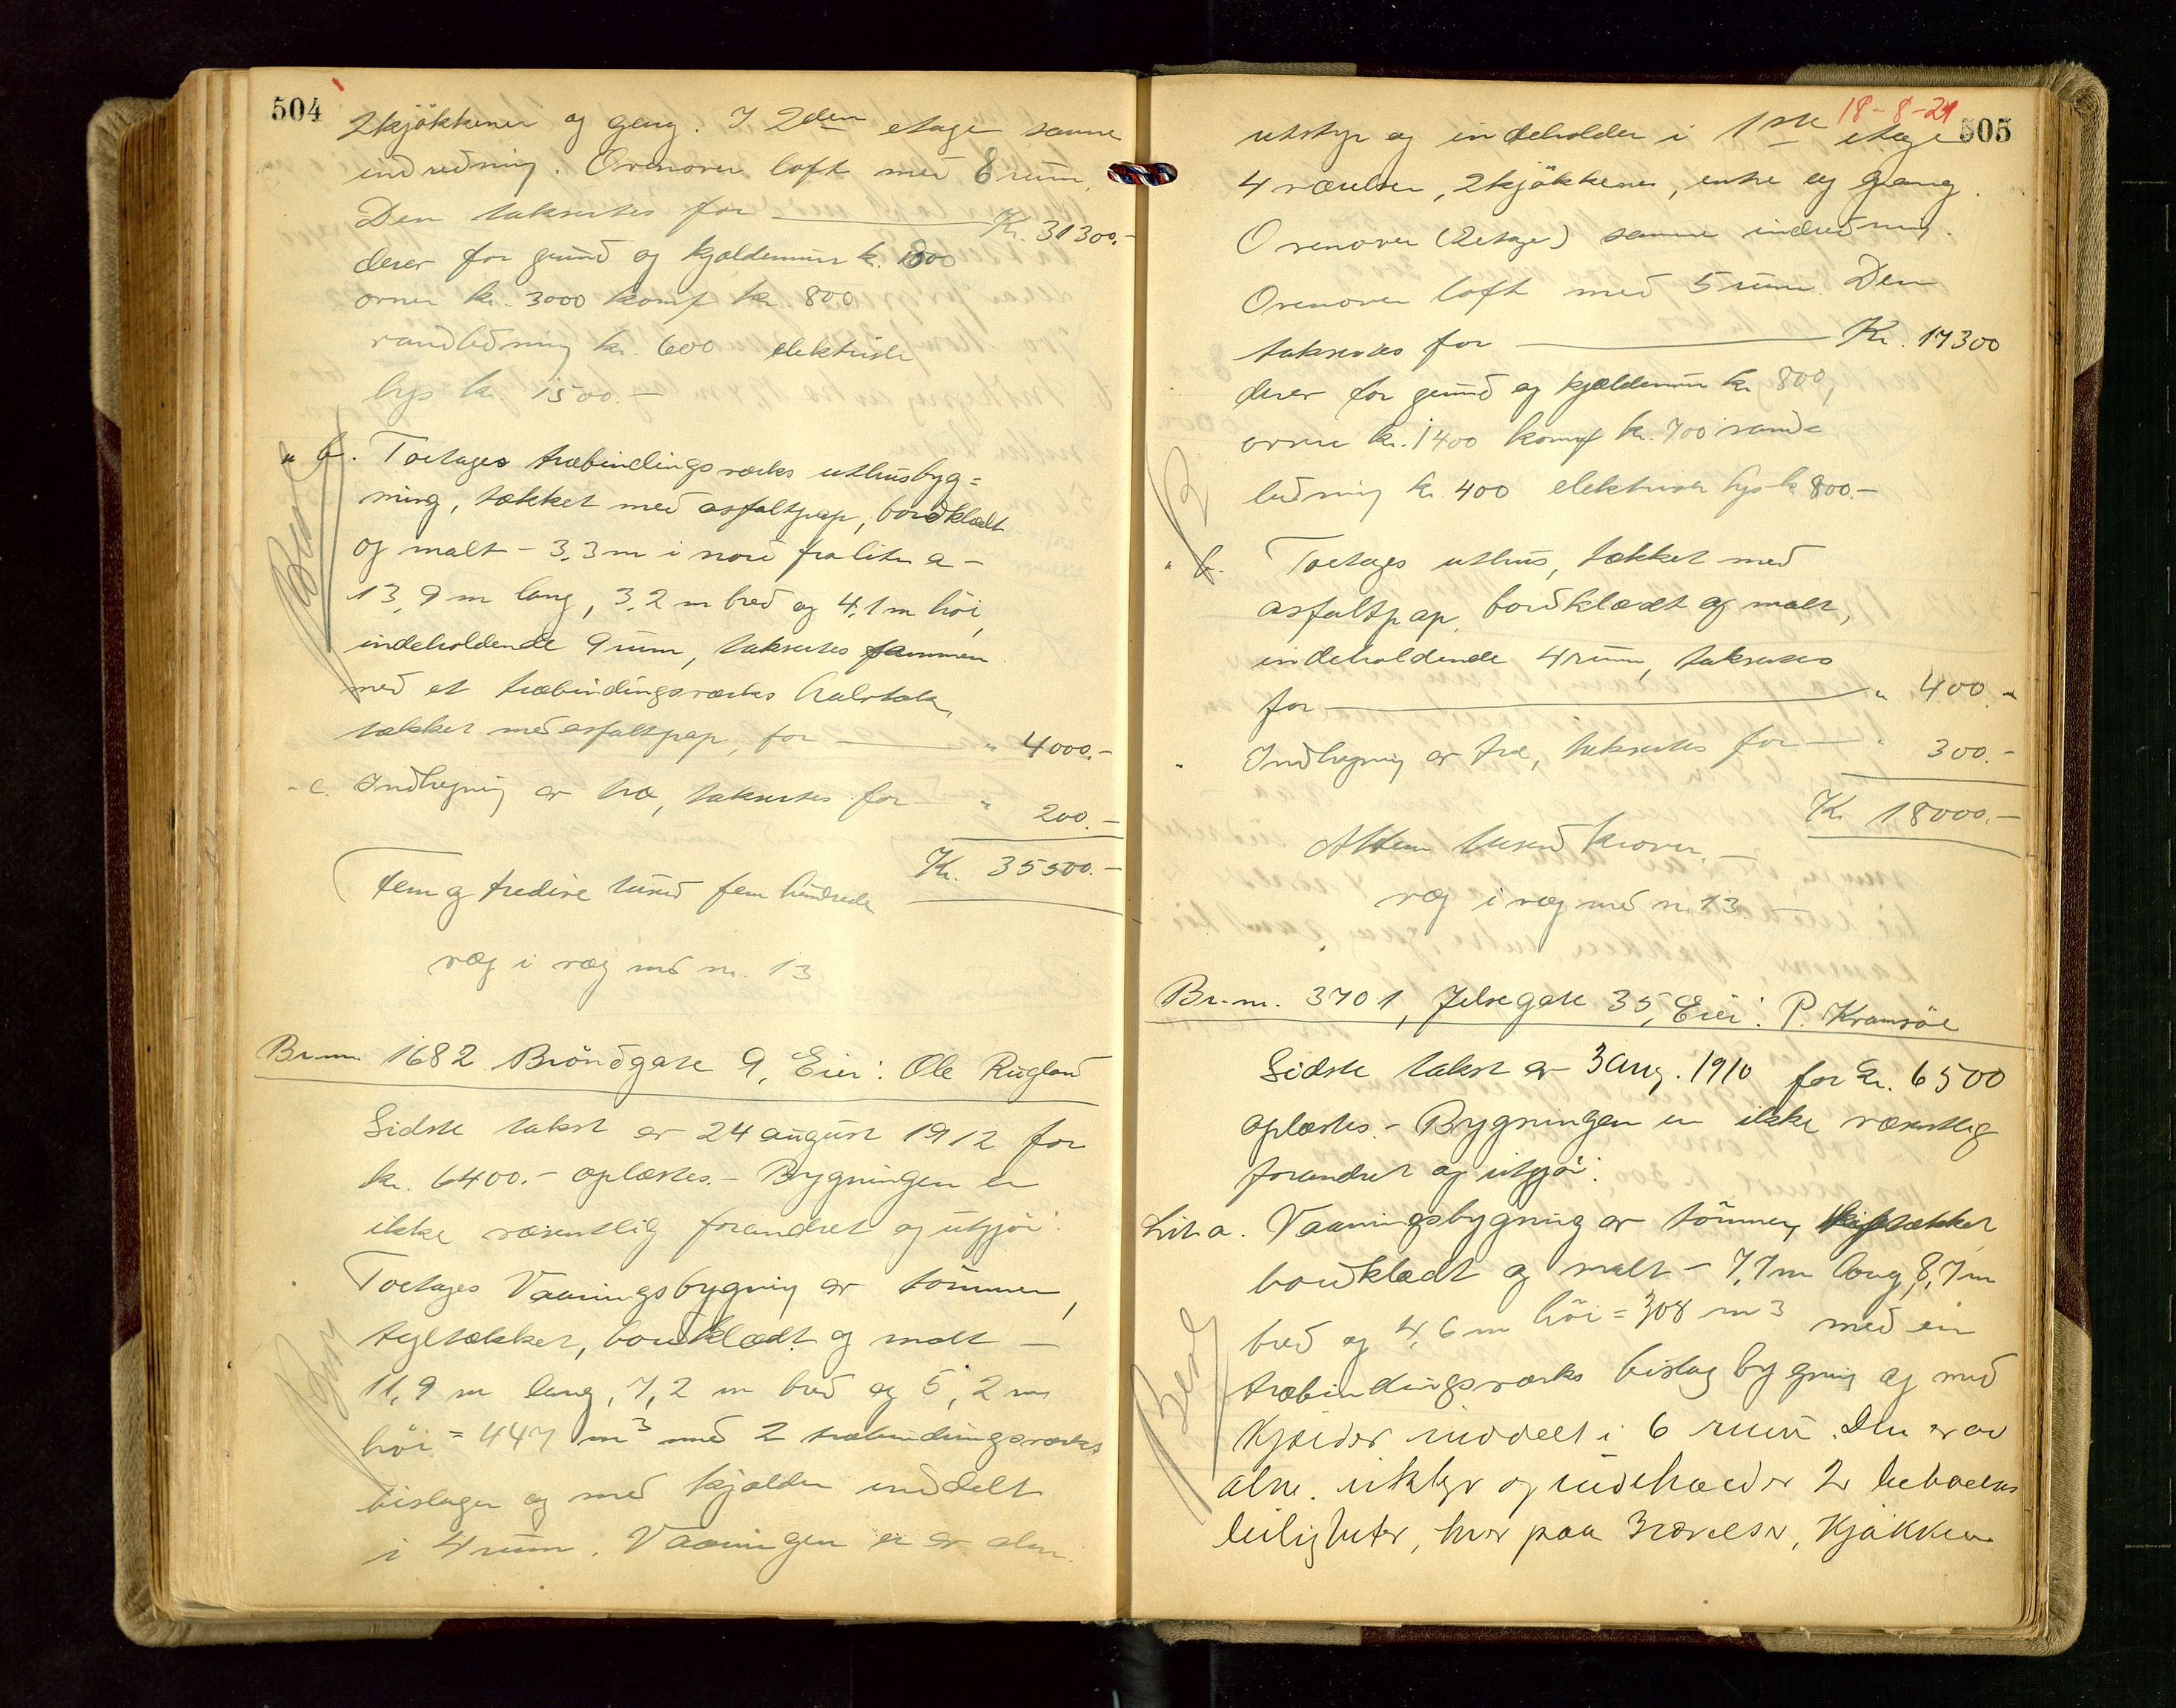 504
2kjökkener og gang. I 2den etage samme
indredning. Ovenover loft med 8 rum.
Den takseres for Kr. 31300.-
derav for grund og kjældermur k. 1800
ovner kr. 3000 komf kr. 800
vandledning kr. 600 elektriske
lys kr. 1500.-
" b. Toetages træbindingsverks uthusbyg=
ning, tækket med asfaltpap, bordklædt
og malt - 3,3m i nord fra litra a -
13,9 m lang, 3,2 m bred og 4,1 m höi,
indeholdende 9 rum, takseres sammen
med et træbindingsverks halvtak,
tækket med asfaltpap, for " 4000.-
" c. Indhegning av træ, takseres for " 200.-
Kr. 35500.-
Fem og tredive tusend fem hundrede
væg i væg med nr. 13
Br.nr. 1682 Bröndgate 9, Eier: Ole Rugland
Sidste takst av 24 august 1912 for
kr. 6400.- oplæstes.- Bygningen er
ikke væsentlig forandret og utgjör:
Toetages Vaaningsbygning av tömmer,
tegltækket, bordklædt og malt -
11,9 m lang, 7,2 m bred og 5,2 m
höi = 447 m3 med 2 træbindingsverks
bislager og med kjælder inddelt
i 4 rum. Vaaningen er av alm.
18-8-21
505
utstyr og indeholder i 1ste etage
4 værelser, 2kjökkener, entre og gang.
Ovenover (2etage) samme indredning.
Ovenover loft med 5 rum. Den
takseres for Kr. 17300
derav for grund og kjældermur kr 800,
ovne kr. 1400 komf kr. 700 vand=
ledning kr. 400 elektrisk lys k 800.-
" b. Toetages uthus, tækket med
asfaltpap, bordklædt og malt,
indeholdende 4 rum, takseres
for " 400.-
" Indhegning av træ, takseres for " 300.-
Kr 18000.-
Atten tusend kroner.-
væg i væg med nr. 13.-
Br.nr. 3701, Jelsegate 35, Eier: P. Kramsöe
Sidste takst av 3 aug. 1910 for kr. 6500
oplæstes.- Bygningen er ikke væsentlig
forandret og utgjör:
Lit. a. Vaaningsbygning av tömmer, tækket
bordklædt og malt - 7,7m lang, 8,7m
bred og 4,6 m höi = 308 m3 med en
træbindingsverks bislag bygning og med
Kjælder inddelt i 6 rum. Den er av
alm. utstyr og indeholder 2 beboelses
leiligheter, hver paa 3 værelser, Kjökken